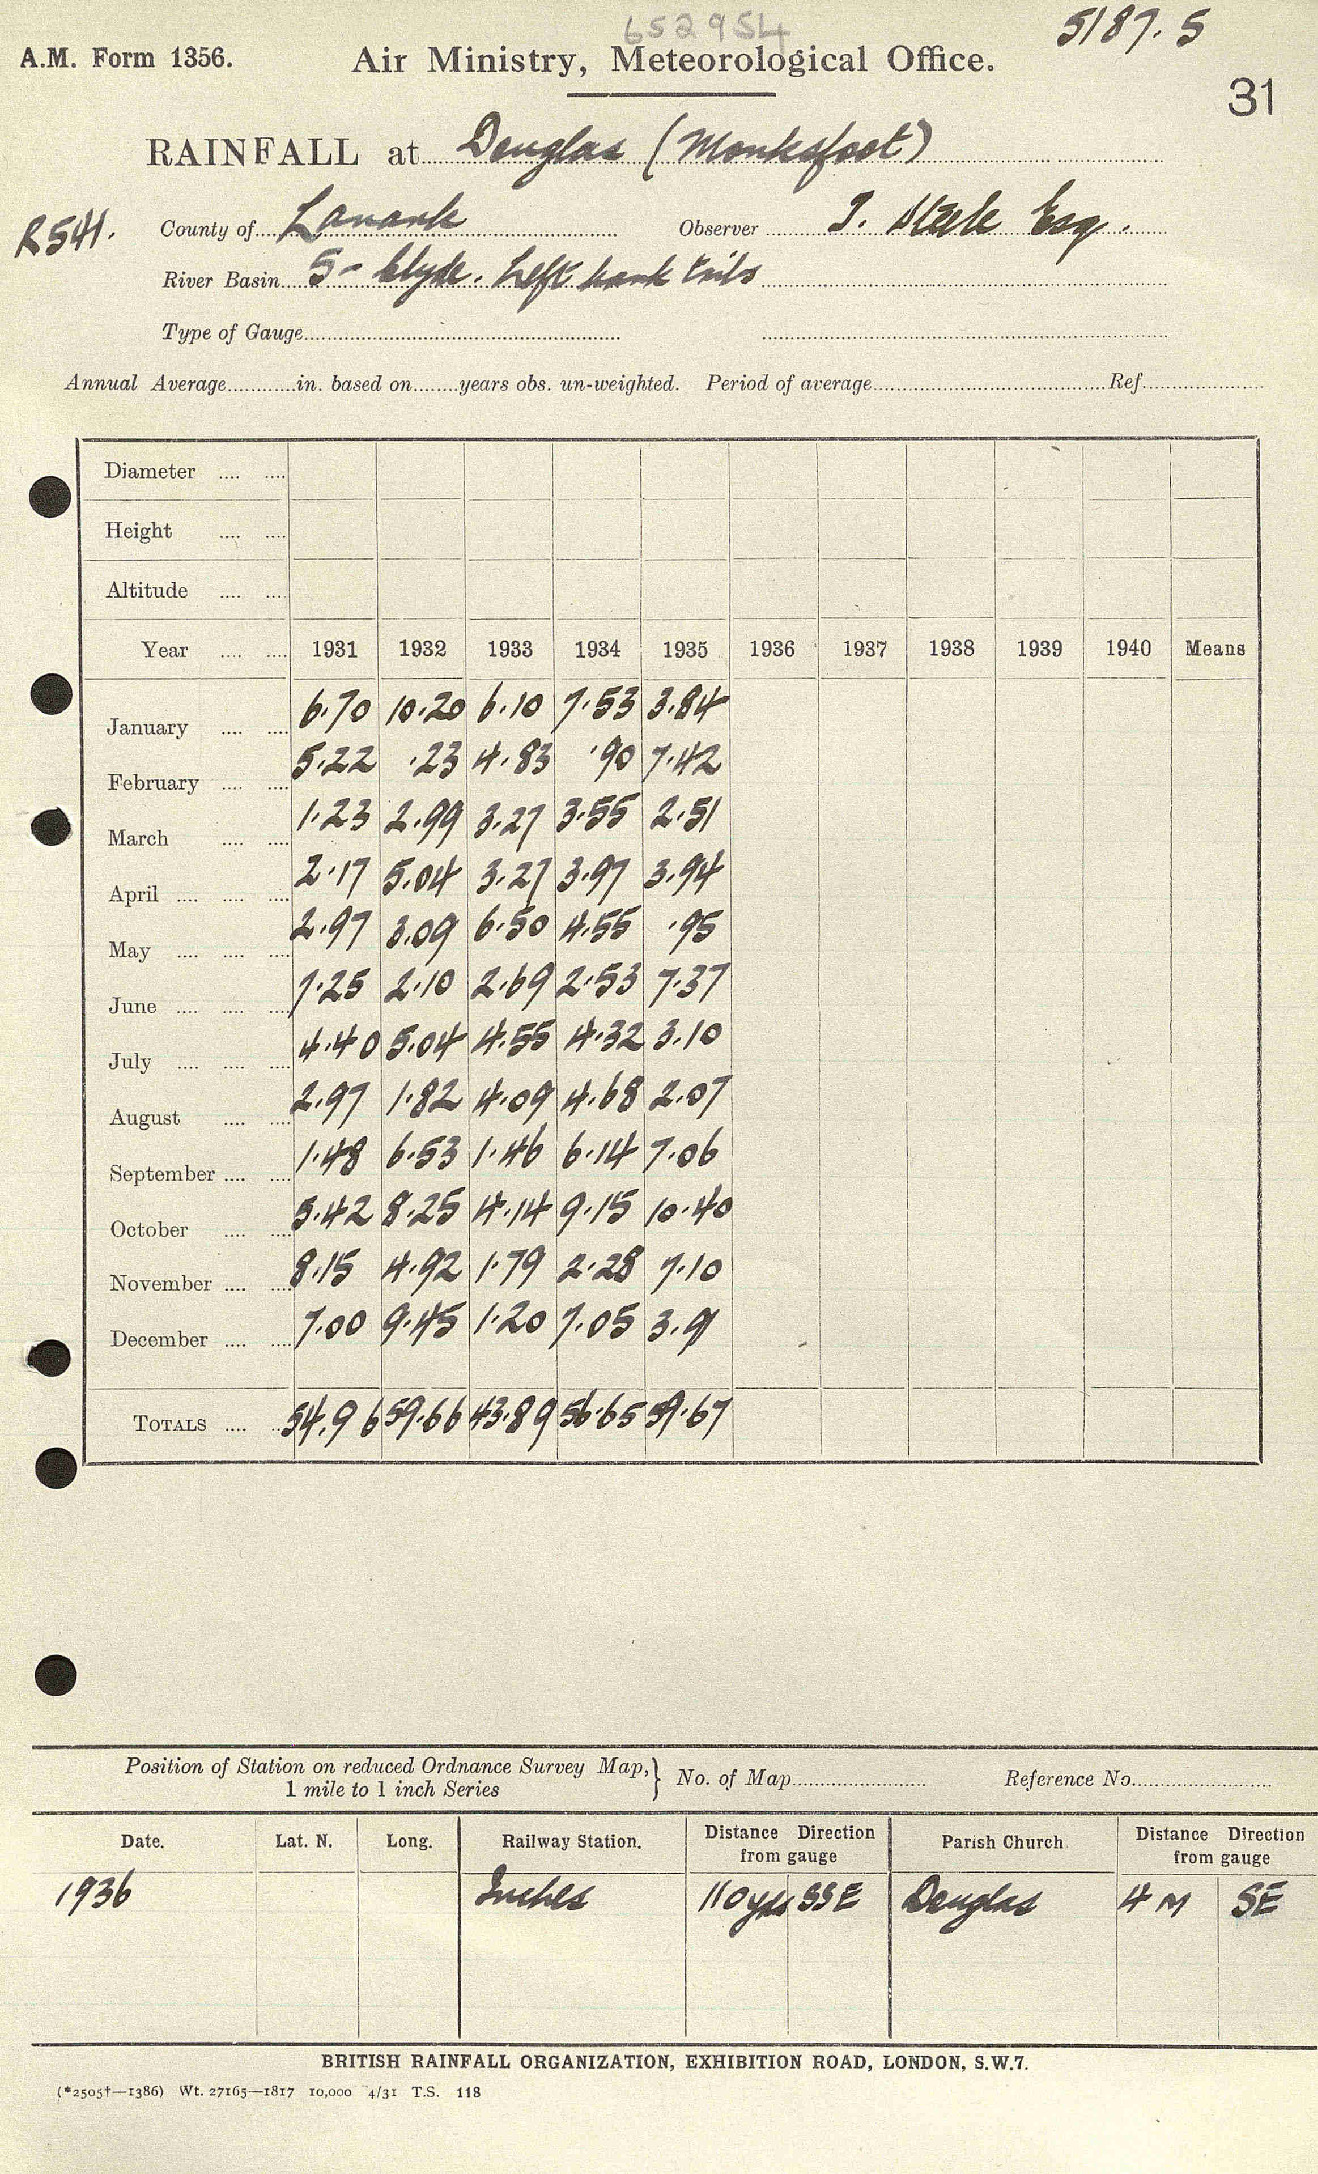 652954
5187.5
A.M. Form 1356.
Air Ministry, Meteorological Office.
31
RAINFALL at Douglas (Monksfoot)
R541.
County of Lanark Observer J. Steele Esq.
River Basin 5- Clyde. Left bank tribs
Type of Gauge
Annual Average in. based on years obs. un-weighted. Period of average Ref
Diameter
Height
Altitude
Year 1931 1932 1933 1934 1935 1936 1937 1938 1939 1940 Means
January 6.70 10.20 6.10 7.53 3.84
February 5.22 .23 4.83 .90 7.42
March 1.23 2.99 3.27 3.55 2.51
April 2.17 5.04 3.27 3.97 3.94
May 2.97 3.09 6.50 4.55 .95
June 7.25 2.10 2.69 2.53 7.37
July 4.40 5.04 4.55 4.32 3.10
August 2.97 1.82 4.09 4.68 2.07
September 1.48 6.53 1.46 6.14 7.06
October 5.42 8.25 4.14 9.15 10.40
November 8.15 4.92 1.79 2.28 7.10
December 7.00 9.45 1.20 7.05 3.91
TOTALS 54.96 59.66 43.89 56.65 59.67
Position of Station on reduced Ordnance Survey Map,} No. of Map Reference No.
1 mile to 1 inch Series
Date. Lat. N. Long. Railway Station. Distance Direction Parish Church Distance Direction
from gauge from gauge
1936 Inches 110 yds SSE Douglas 4 M SE
BRITISH RAINFALL ORGANIZATION, EXHIBITION ROAD, LONDON, S.W.7.
(*2505†—1386) Wt. 27165—1817 10,000 4/31 T.S. 118